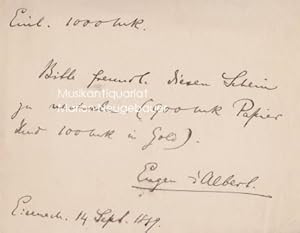 Einl. 1000 Mk.
Bitte freundl. diesen Schein
zu (900 Mk Papier
und 100 Mk in Gold).
Eugen d'Albert.
Eisenach. 14 Sept. 1889.
Musikantiquariat
Marion Neugebauer